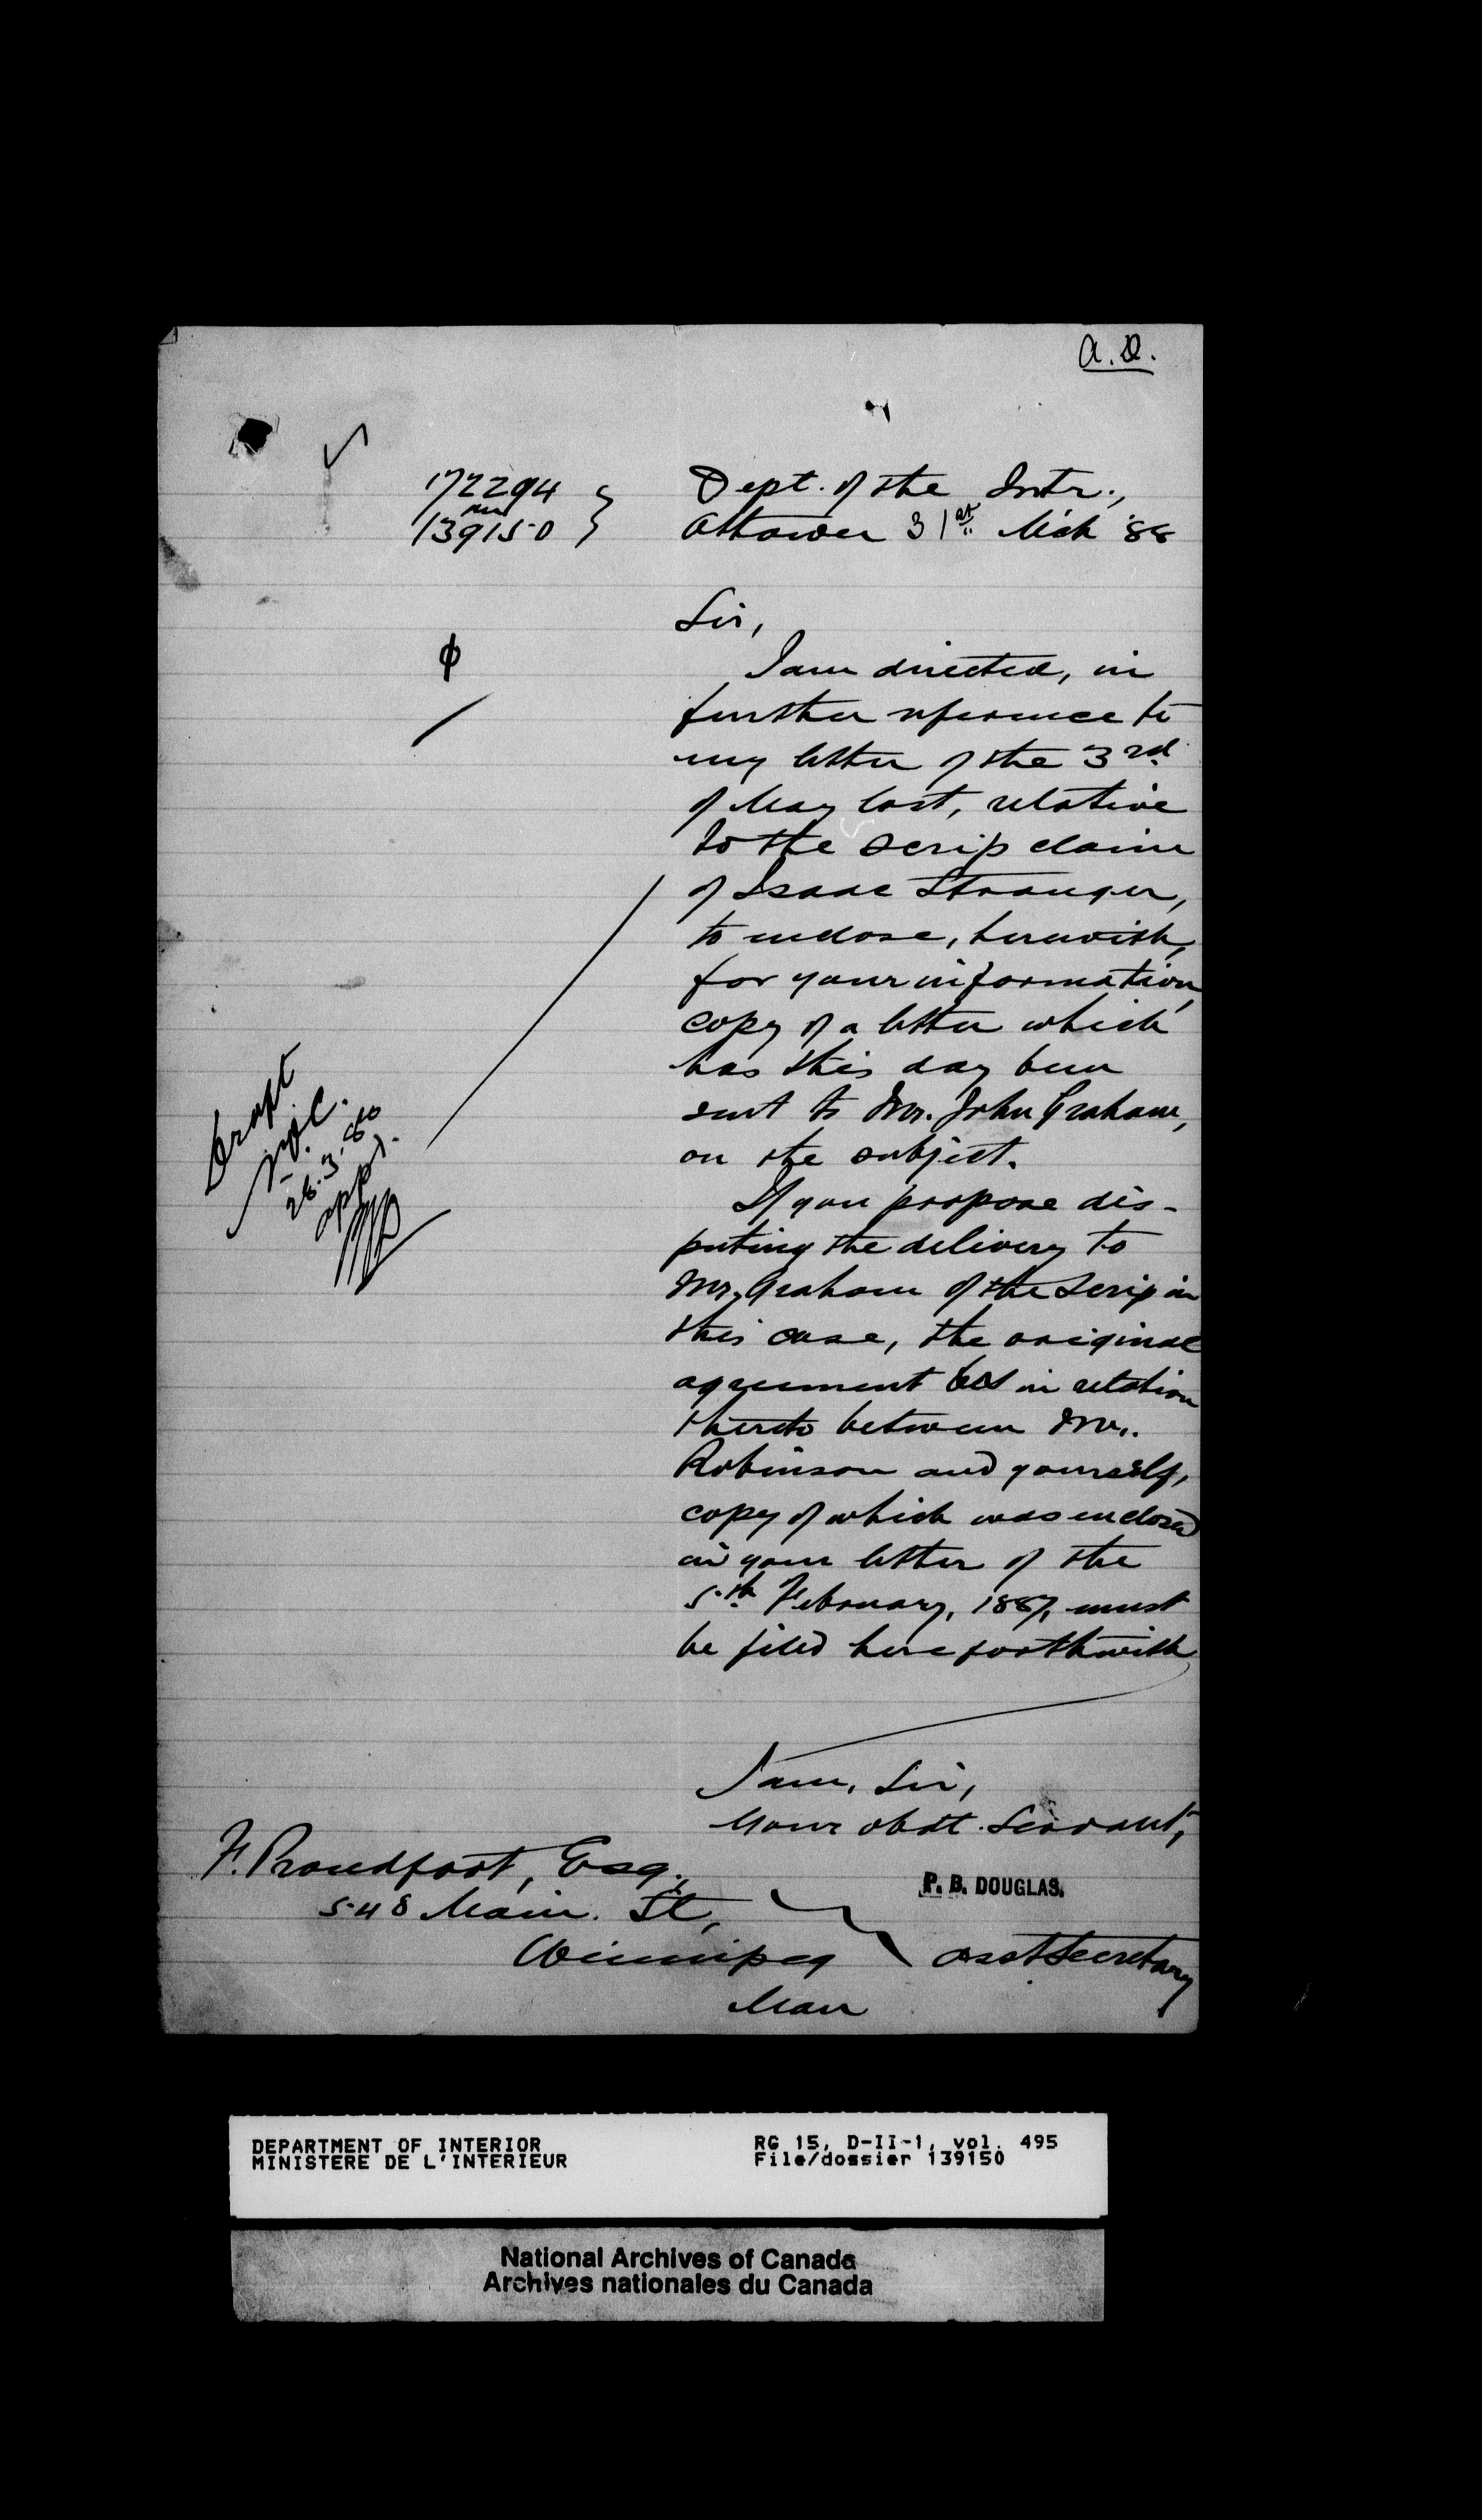 A.D.
172294
139150
Dept. of the Intr.,
Ottawa 31st Mch '88
Sir,
I am directed, in
further reference to
my letter of the 3rd
of May last, relative
to the scrip claim
of Isaac Stranger,
to enclose, herewith,
for your information,
copy of a letter which
has this day been
sent to Mr. John Graham,
on the subject.
If you propose dis-
puting the delivery to
Mr. Graham of the Scrip in
this case, the original
agreement in relation
thereto between Mr.
Robinson and yourself,
copy of which was enclosed
in your letter of the
5th February, 1887, must
be filed here forthwith
Draft
26.3.88
appd.
I am, Sir,
Your obdt. Servant,
P. B. DOUGLAS.
Asst Secretary
F. Proudfoot, Esq.,
548 Main. St,
Winnipeg
Man
DEPARTMENT OF INTERIOR
MINISTERE DE L'INTERIEUR
RG 15, D-II-1, vol. 495
File/dossier 139150
National Archives of Canada
Archives nationales du Canada